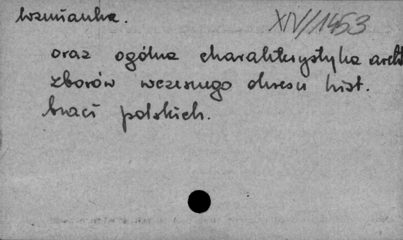 wzmianka.
XIV/1453
oraz ogólna charakterystyka archit
zborów wczesnego okresu hist.
braci polskich.